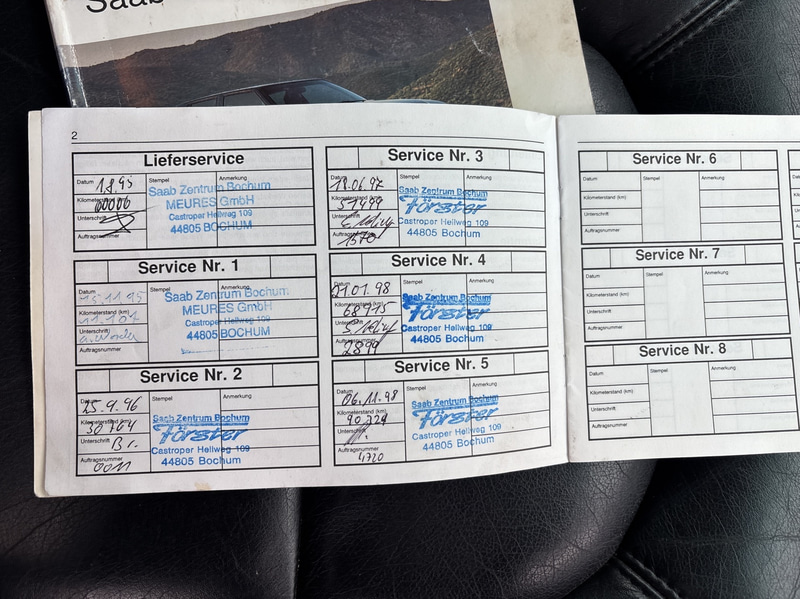 Saab
2
Lieferservice
Datum
1.8.95
Stempel
Anmerkung
Kilometerstand
00006
Unterschrift
Auftragsnummer
Saab Zentrum Bochum
MEURES GmbH
Castroper Hellweg 109
44805 BOCHUM
Service Nr. 1
Datum
15.11.95
Stempel
Anmerkung
Kilometerstand (km)
Unterschrift
Auftragsnummer
Saab Zentrum Bochum
MEURES GmbH
Castroper Hellweg 109
44805 BOCHUM
Service Nr. 2
Datum
25.9.96
Stempel
Anmerkung
Kilometerstand (km)
Unterschrift
Br.
Auftragsnummer
0011
Saab Zentrum Bochum
Förster
Castroper Hellweg 109
44805 Bochum
Service Nr. 3
Datum
18.06.97
Stempel
Anmerkung
Kilometerstand (km)
57499
Unterschrift
Auftragsnummer
1570
Saab Zentrum Bochum
Förster
Castroper Hellweg 109
44805 Bochum
Service Nr. 4
Datum
21.01.98
Stempel
Anmerkung
Kilometerstand (km)
68915
Unterschrift
Auftragsnummer
2899
Saab Zentrum Bochum
Förster
Castroper Hellweg 109
44805 Bochum
Service Nr. 5
Datum
06.11.98
Stempel
Anmerkung
Kilometerstand (km)
90229
Unterschrift
Auftragsnummer
4720
Saab Zentrum Bochum
Förster
Castroper Hellweg 109
44805 Bochum
Service Nr. 6
Datum
Stempel
Anmerkung
Kilometerstand (km)
Unterschrift
Auftragsnummer
Service Nr. 7
Datum
Stempel
Anmerkung
Kilometerstand (km)
Unterschrift
Auftragsnummer
Service Nr. 8
Datum
Stempel
Anmerkung
Kilometerstand (km)
Unterschrift
Auftragsnummer